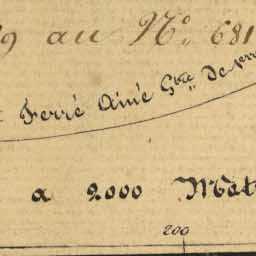 9 au No. 681
Ferré Ainé Gbre de
a 2000 Mèt
200